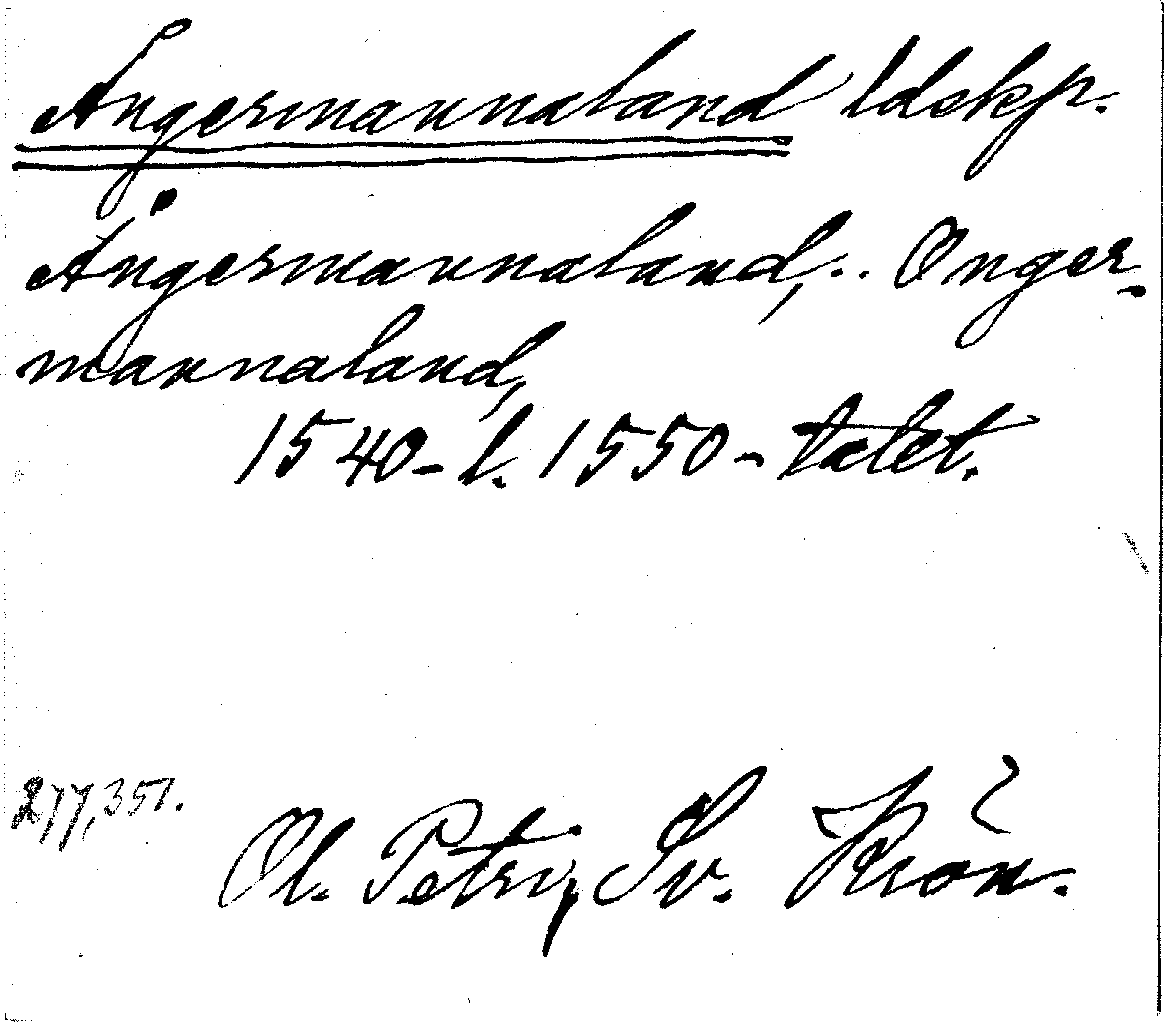 Ångermannaland ldskp.
Ångermannaland, .. Onger-
mannaland,
1540- l. 1550-talet.
277, 351.
Ol. Petri, Sv. Krön.